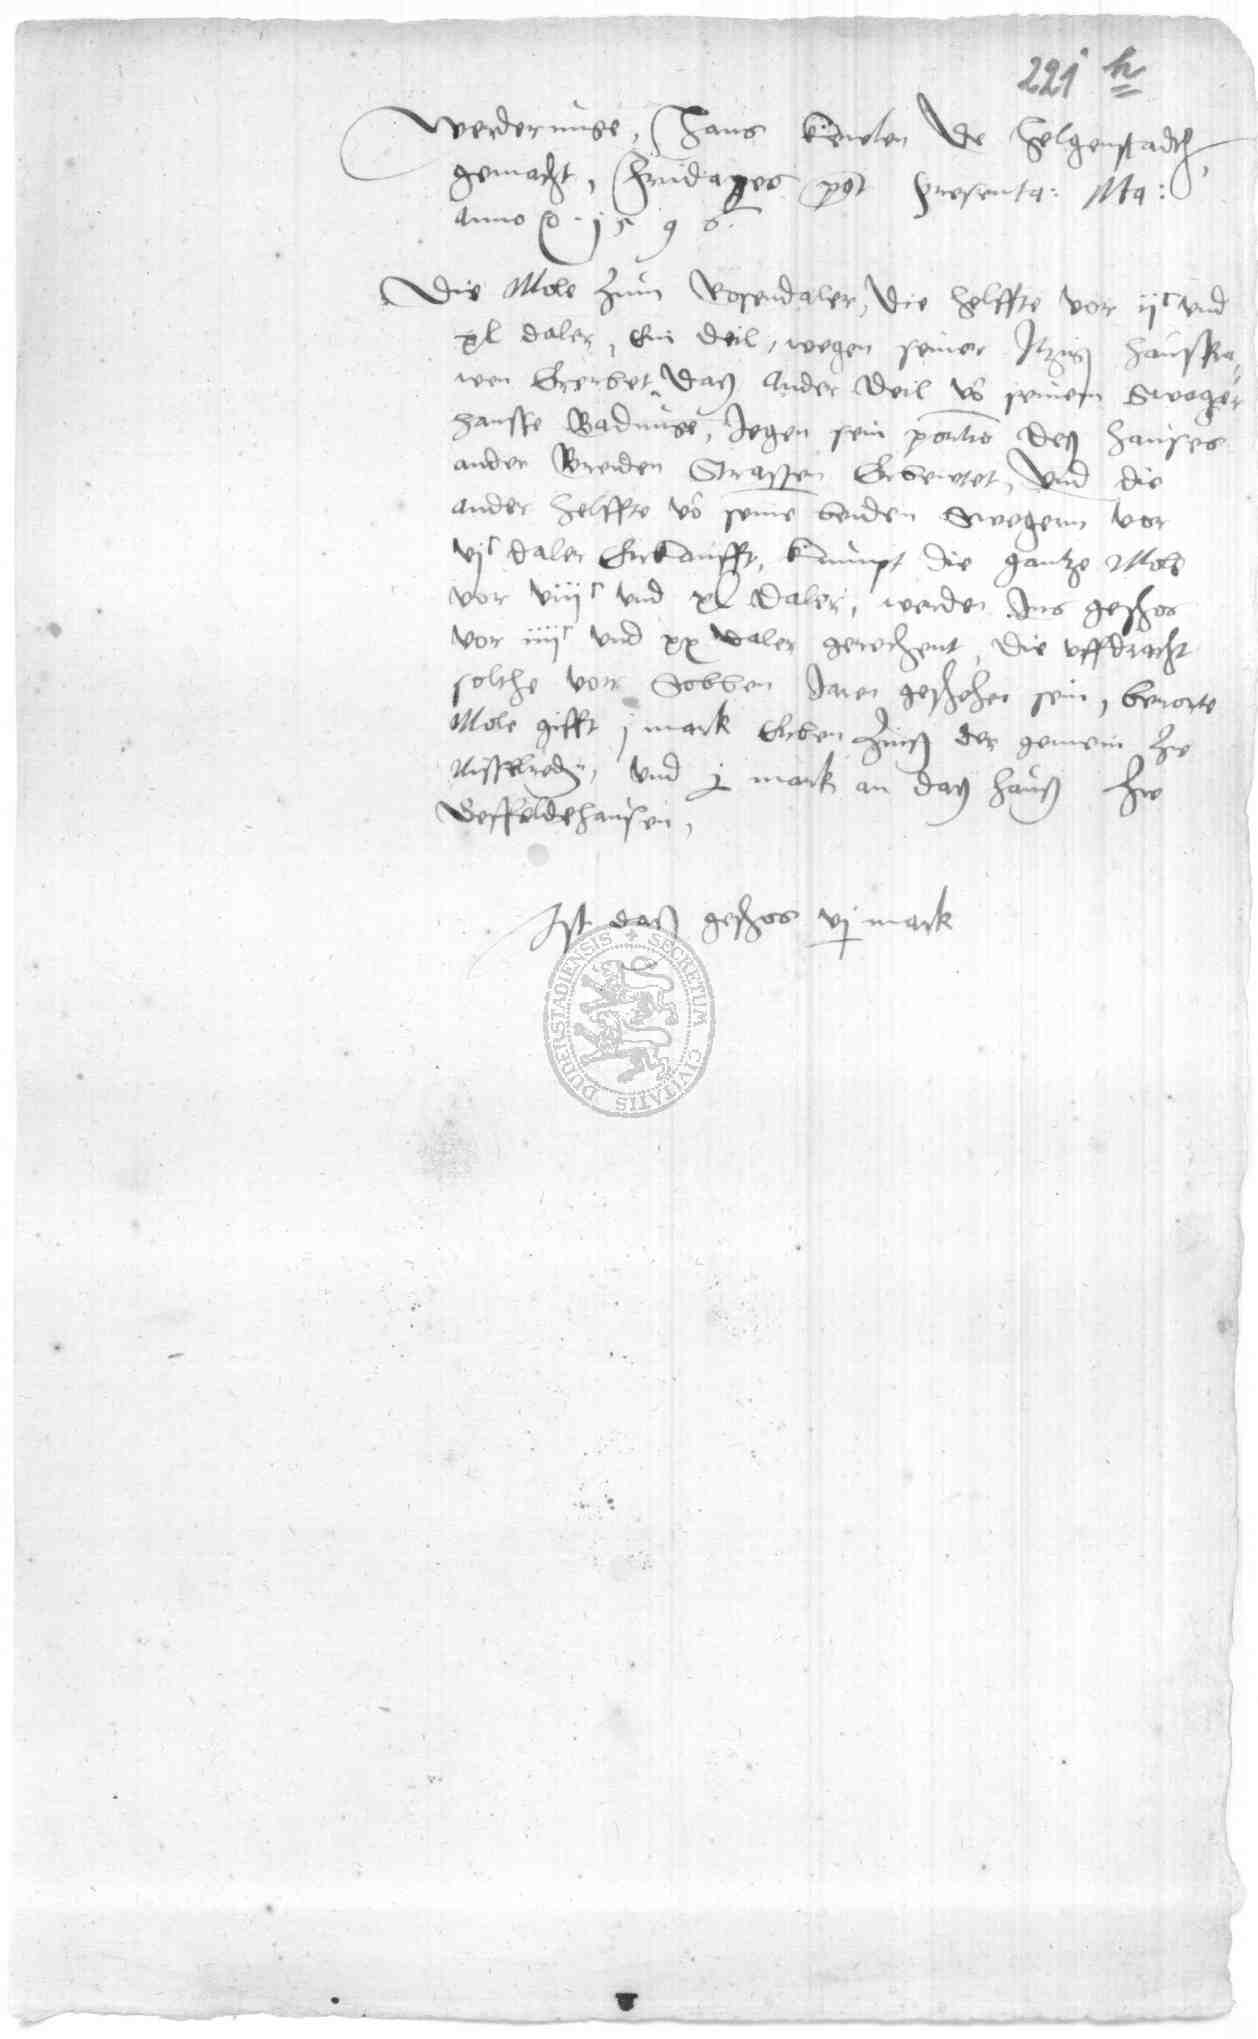 221 h
Werderunge, Hans de Helgenstadth,
gemacht, Fridages post presenta: Ma:
Anno D. 1596
Die Mole zum Rosendaler, die helffte vor ijc und
xl daler, Ein deil, wegen seiner Itzigen hausfra,
wen Ererbet, daß ander deil vo seinem Swager
Hansse Badunge, Jegen sein portio deß hauses
ander Breiden Strassen Erbeutet, Und die
ander helffte vo seine beiden Swegern vor
vjc daler Erkaufft, kumpt die gantze Mole
vor viijc und xl daler, werden Ins geschos
vor iiijc und xx daler gerechent, die uffdracht
solche vorr Sobben Jaren geschehen sein, berorte
Mole gifft j mark Erben Zinß der gemein Zu
und j mark an daß hauß Zu
Ist daß geschos vj mark
SECRETUM CIVITATIS DUDERSTADIENSIS